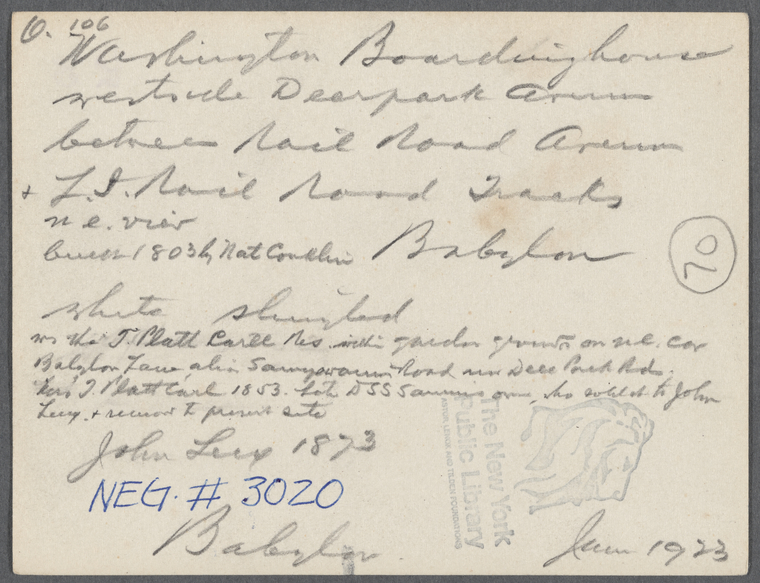 O. 106
Washington Boardinghouse
westside Deerpark Avenue
between Rail Road Avenue
+ L.I. Rail Road Tracks
n.e. view
built 1803 by Nat Conklin Babylon
70
white shingled
was the T. Platt Carll Res. with garden grounds on n.e. cor
Babylon Lane alias Road Deer Park Rd.
T. Platt Carll 1853. DSS Sammis he sold it to John
Leux + remov to present site
John Leux 1873
NEG. # 3020
Babylon
June 1923
The New York
Public Library
ASTOR LENOX AND TILDEN FOUNDATIONS